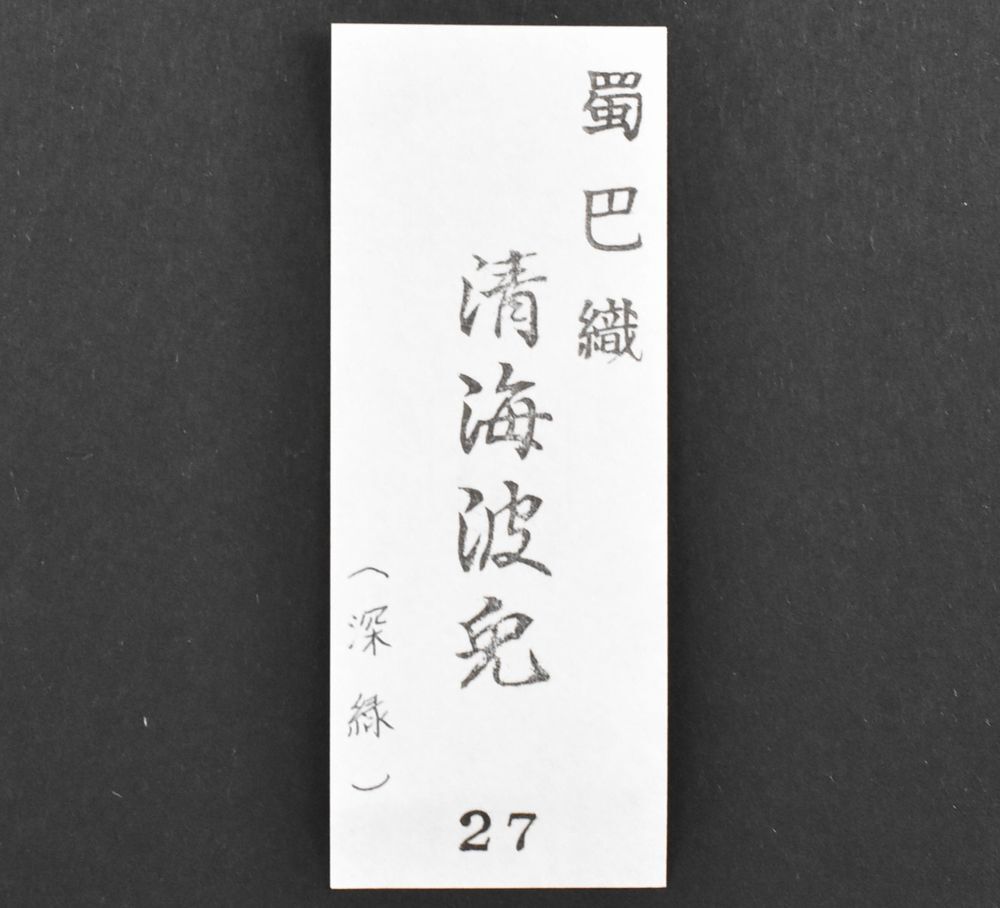 蜀巴織
清海波兎
（深緑）
27